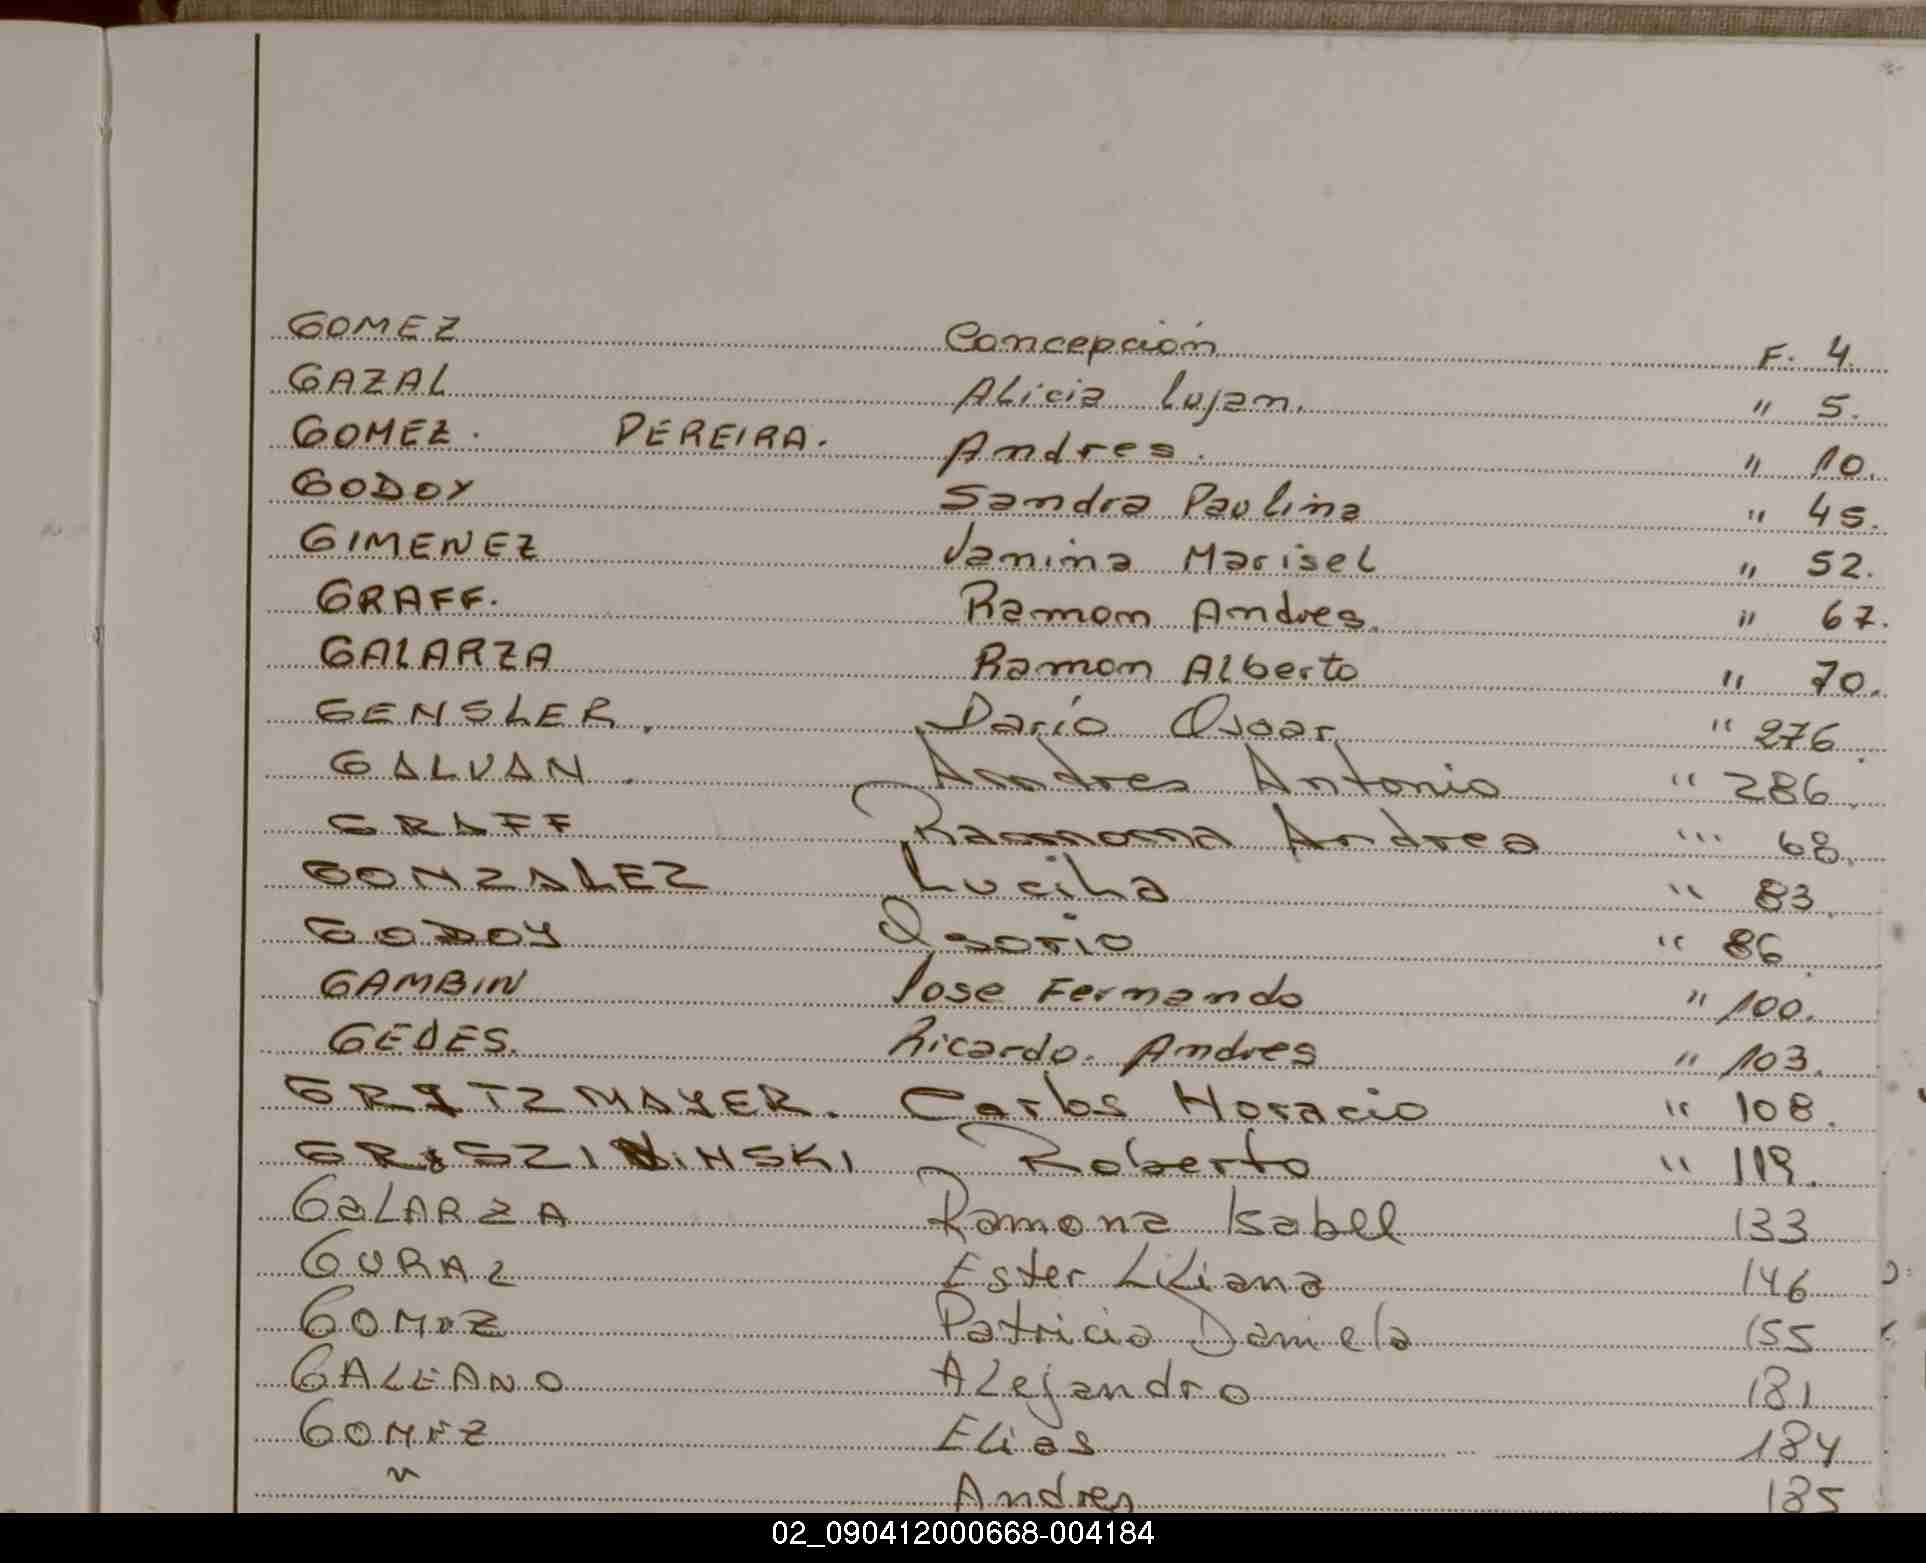 GOMEZ Concepción F. 4.
GAZAL Alicia lujan. " 5.
GOMEZ. PEREIRA. Andres. " 10.
GODOY Sandra Paulina " 45.
GIMENEZ Janina Marisel " 52.
GRAFF. Ramon Andres. " 67.
GALARZA Ramon Alberto " 70.
GENSLER. Darío Oscar " 276.
GALVAN. Andres Antonio " 286.
GRAFF Ramona Andrea " 68.
GONZALEZ Lucila " 83.
GODOY Osorio " 86.
GAMBIN Jose Fernando " 100.
GEDES. Ricardo. Andres " 103.
GRITZMAYER. Carlos Horacio " 108.
Roberto " 119.
GaLARZA Ramona Isabel 133
GURAL Ester Liliana 146
GOMEZ Patricia Daniela 155
GALEANO Alejandro 181
GOMEZ Elias 184
" Andres 185
02_090412000668-004184